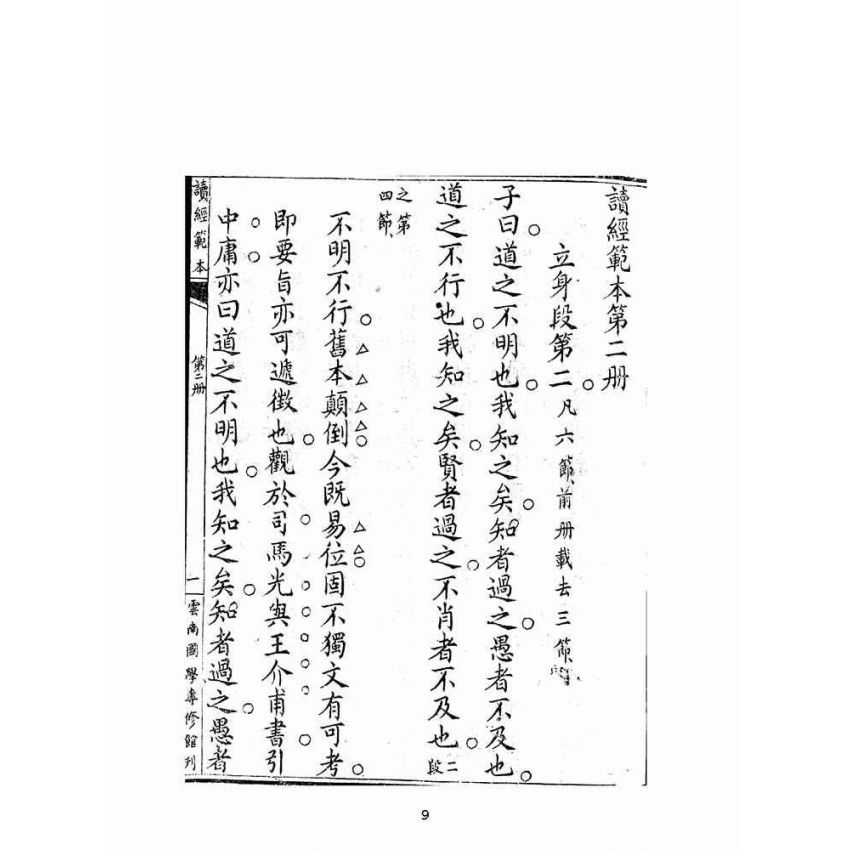 讀經範本第二册
立身段第二。凡六節、前册載去三節、
子曰。道之不明也。我知之矣。知者過之。愚者不及也。
道之不行也。我知之矣。賢者過之。不肖者不及也。二段
之第四節、
不明不行。舊本顛倒。今既易位。固不獨文有可考。
即要旨亦可遞徵也。觀於司馬光與王介甫書。引
中庸亦曰。道之不明也。我知之矣。知者過之。愚者
讀經範本
第二册
一
雲南國學專修館刋
9